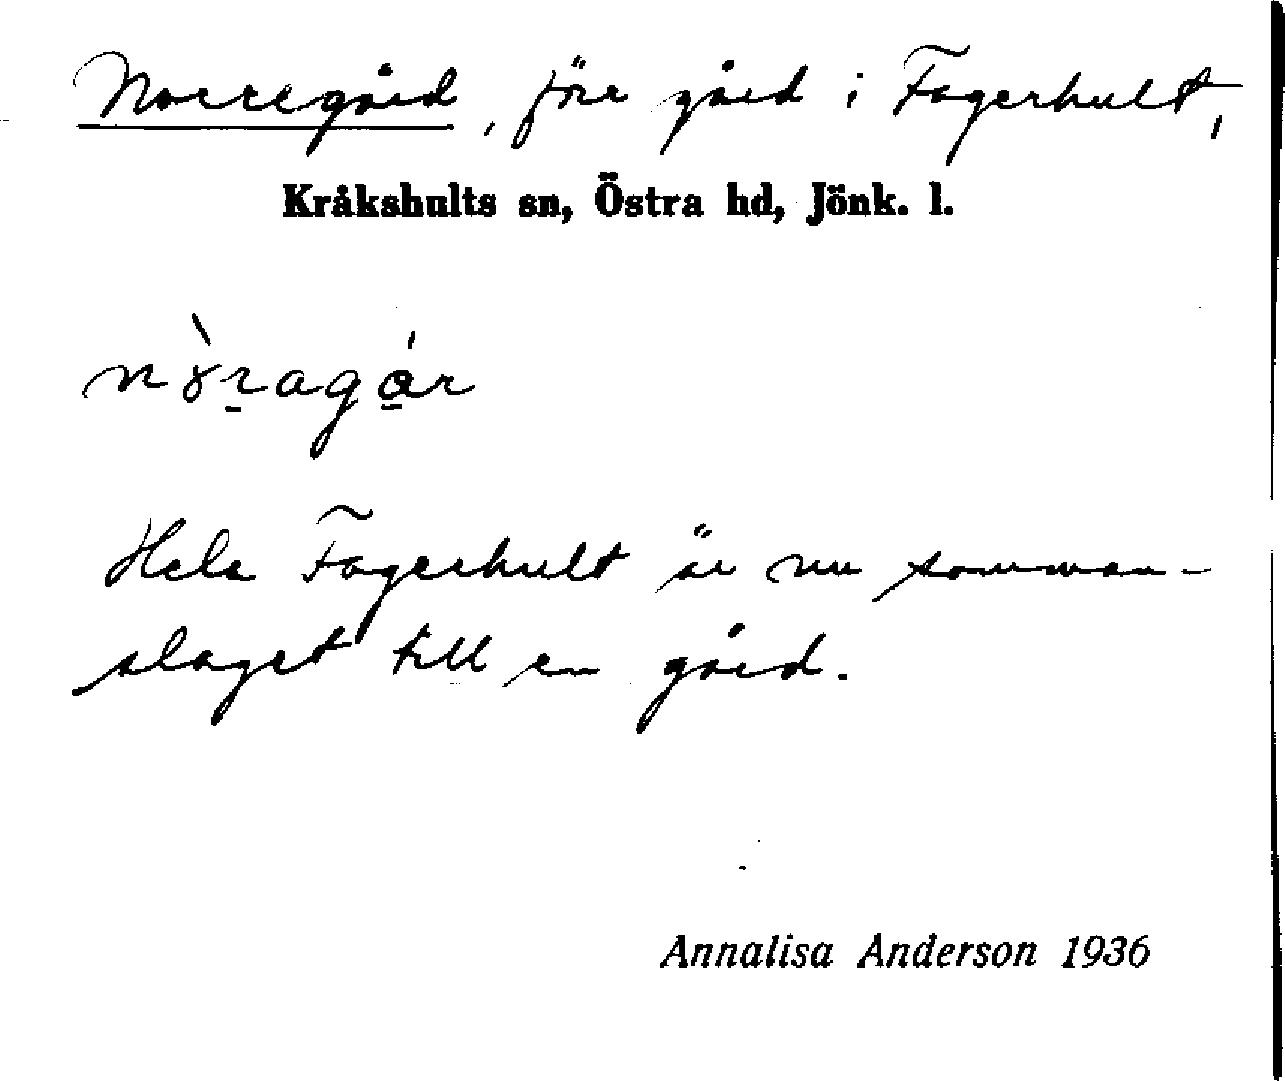 Norregård, före gård i Fagerhult,
Kråkshults sn, Östra hd, Jönk. l.
Hela Fagerhult är nu samman-
slaget till en gård.
Annalisa Anderson 1936